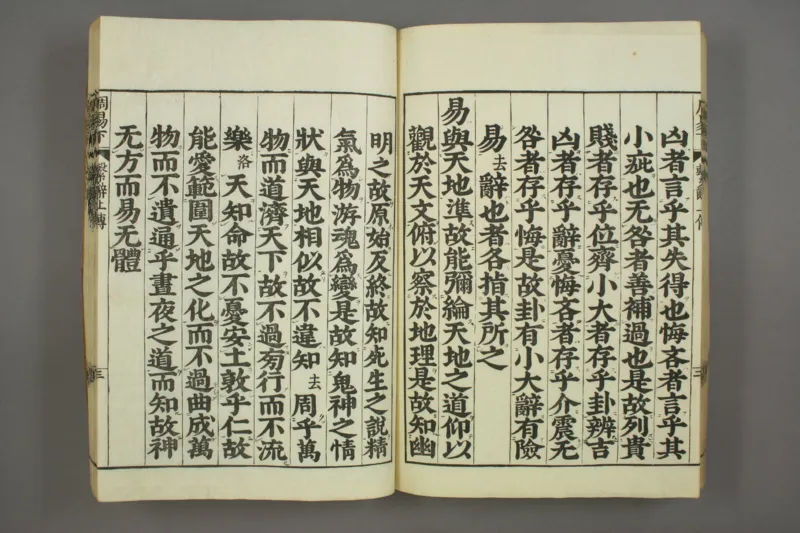 凶者言乎其失得也悔吝者言乎其
小疵也无咎者善補過也是故列貴
賤者存乎位齊小大者存乎卦辨吉
凶者存乎辭憂悔吝者存乎介震无
咎者存乎悔是故卦有小大辭有險
易去辭也者各指其所之
易與天地準故能彌綸天地之道仰以
觀於天文俯以察於地理是故知幽
明之故原始反終故知死生之說精
氣爲物游魂爲變是故知鬼神之情
狀與天地相似故不違知去周乎萬
物而道濟天下故不過旁行而不流
樂洛天知命故不憂安土敦乎仁故
能愛範圍天地之化而不過曲成萬
物而不遺通乎晝夜之道而知故神
无方而易无體
周易下 繫辭上傳 三